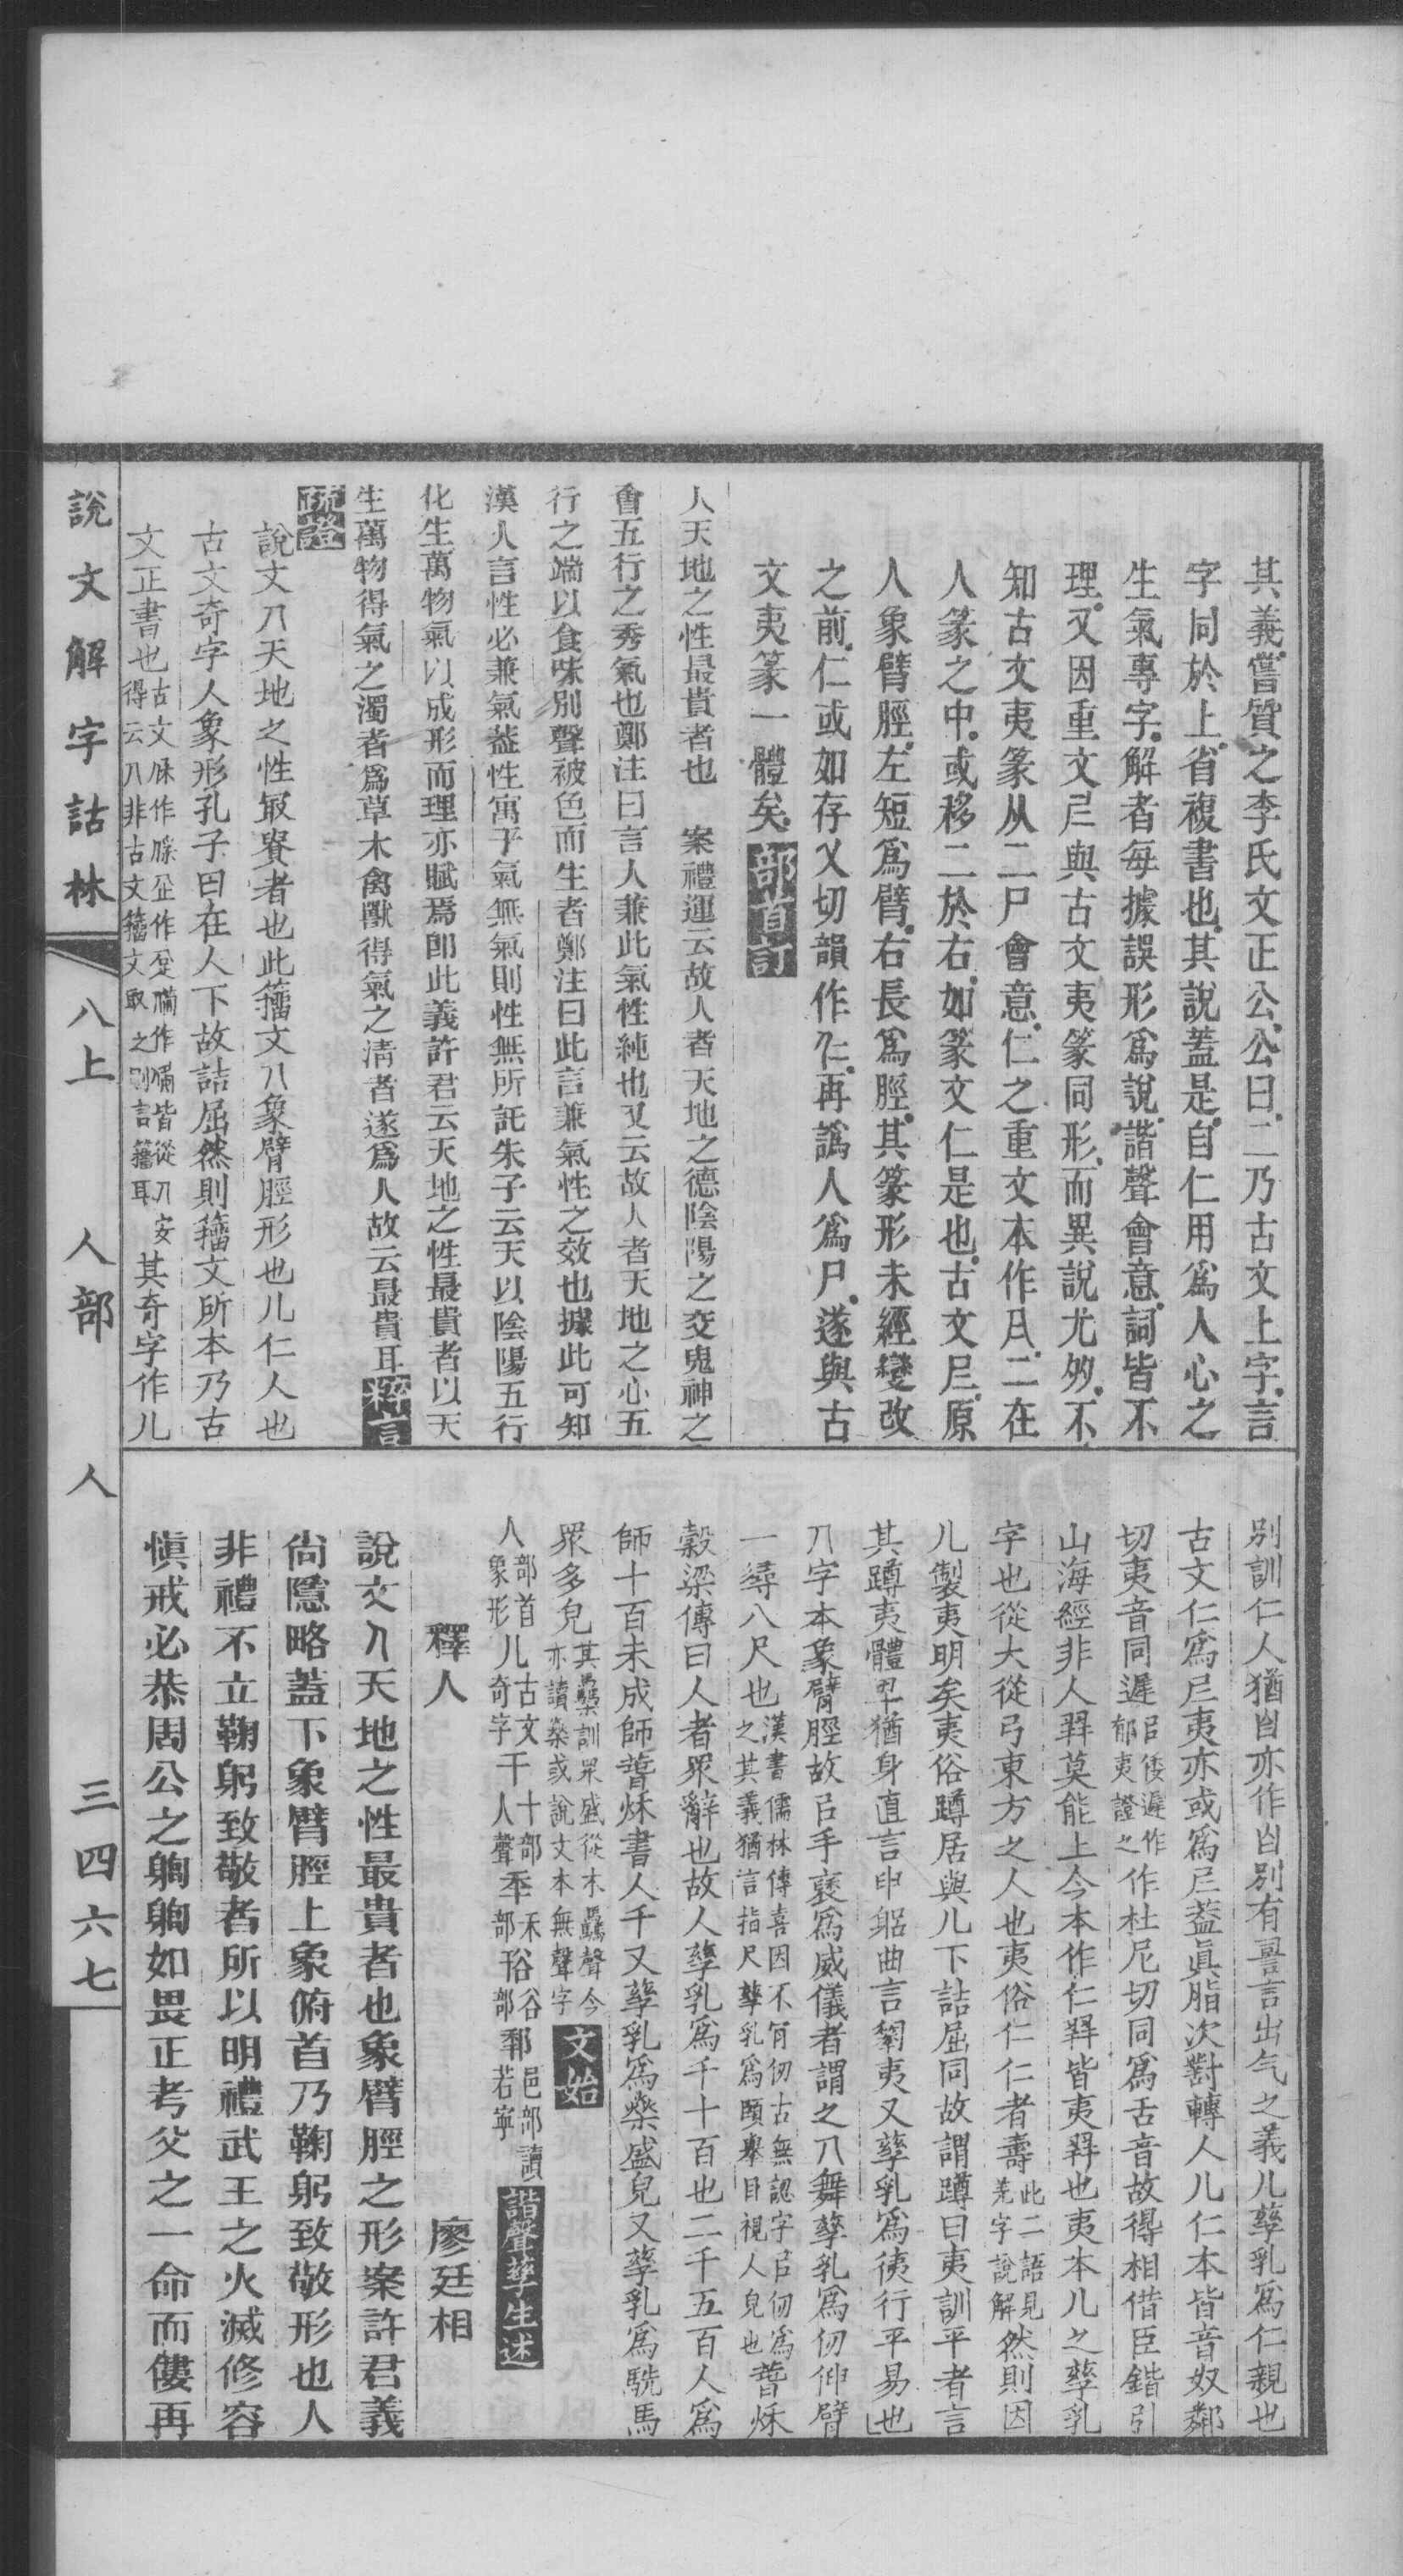 其義嘗質之李氏文正公公曰二乃古文上字言
字同於上省複書也其說蓋是自仁用爲人心之
生氣專字解者每據誤形爲說諧聲會意詞皆不
理又因重文𡰥與古文夷篆同形而異說尤夥不
知古文夷篆从二尸會意仁之重文本作𡰥二在
人篆之中或移二於右如篆文仁是也古文𡰥原
人象臂脛左短爲臂右長爲脛其篆形未經變改
之前仁或如存乂切韻作仁再譌人爲尸遂與古
文夷篆一體矣部首訂
人天地之性最貴者也　案禮運云故人者天地之德陰陽之交鬼神之
會五行之秀氣也鄭注曰言人兼此氣性純也又云故人者天地之心五
行之端以食味別聲被色而生者鄭注曰此言兼氣性之效也據此可知
漢人言性必兼氣葢性寓乎氣無氣則性無所託朱子云天以陰陽五行
化生萬物氣以成形而理亦賦焉卽此義許君云天地之性最貴者以天
生萬物得氣之濁者爲草木禽獸得氣之清者遂爲人故云最貴耳
疏證
說文人天地之性㝡貴者也此籀文人象臂脛形也儿仁人也
古文奇字人象形孔子曰在人下故詰屈然則籀文所本乃古
文正書也其奇字作儿
說文解字詁林
八上　人部　人
三四六七
別訓仁人猶自亦作𦣹別有詈言出气之義儿孳乳爲仁親也
古文仁爲𡰥夷亦或爲𡰥葢眞脂次對轉人儿仁本皆音奴鄰
切夷音同遲㠯倭遲作郁夷證之作杜尼切同爲舌音故得相借臣鍇引
山海經非人羿莫能上今本作仁羿皆夷羿也夷本儿之孳乳
字也從大從弓東方之人也夷俗仁仁者壽此二語見羌字說解然則因
儿製夷明矣夷俗蹲居與儿下詰屈同故謂蹲曰夷訓平者言
其蹲夷體卑猶身直言申躬曲言匑夷又孳乳爲侇行平易也
人字本象臂脛故㠯手裦爲威儀者謂之人舞孳乳爲仞伸臂
一尋八尺也漢書儒林傳喜因不肎仞古無認字㠯仞爲之其義猶言指尺孳乳爲頤舉目視人皃也
穀梁傳曰人者眾辭也故人孳乳爲千十百也二千五百人爲
師十百未成師誓稣書人千又孳乳爲燊盛皃又孳乳爲駪馬
眾多皃其燊訓眾盛從木驫聲今亦讀燊或說文本無聲字文始
人部首象形儿古文奇字千十部人聲年禾部㕣谷部邾邑部讀若寧諧聲孳生述
釋人　廖廷相
說文人天地之性最貴者也象臂脛之形案許君義
尙隱略蓋下象臂脛上象俯首乃鞠躬致敬形也人
非禮不立鞠躬致敬者所以明禮武王之火滅修容
愼戒必恭周公之匔匔如畏正考父之一命而僂再